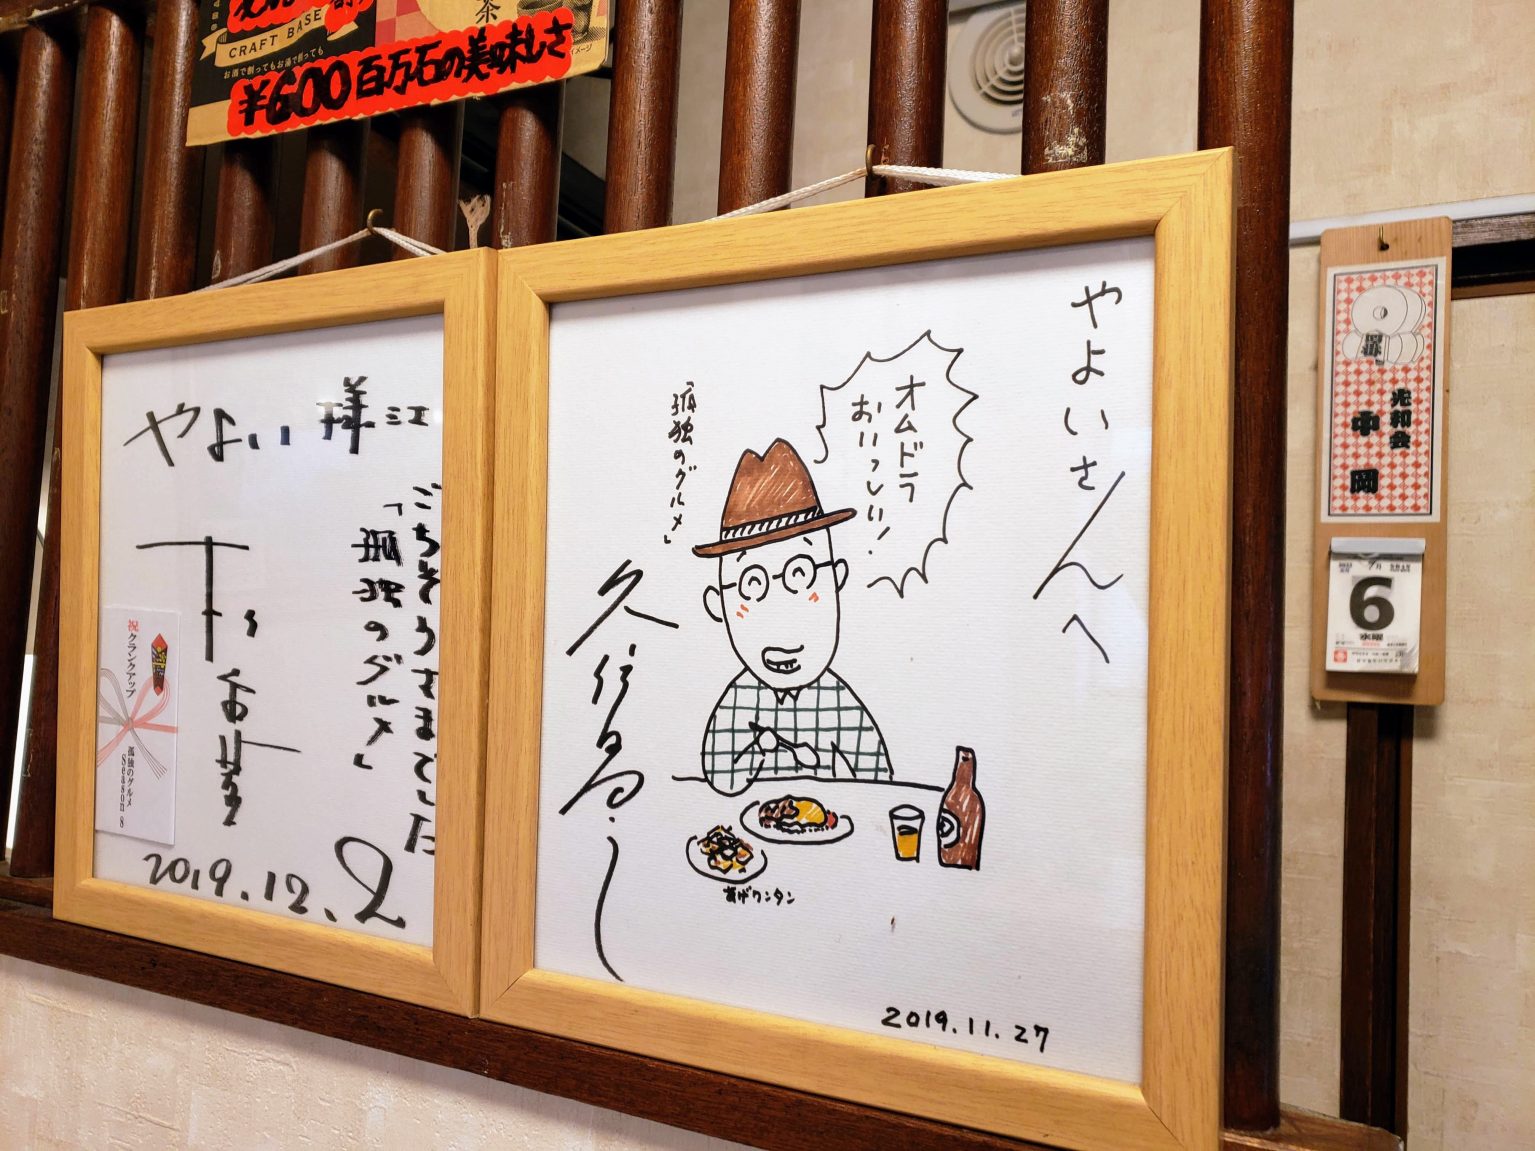 CRAFT BASE
お酒で割ってもお湯で割っても
茶
¥600 百万石の美味しさ
やよい様江
ごちそうさまでした
「孤独のグルメ」
祝
クランクアップ
孤独のグルメ
Season 8
2019.12.2
やよいさんへ
オムドラ
おいっしい!
「孤独のグルメ」
久住昌之
あげワンタン
2019.11.27
光和会
中岡
7月
6
水曜